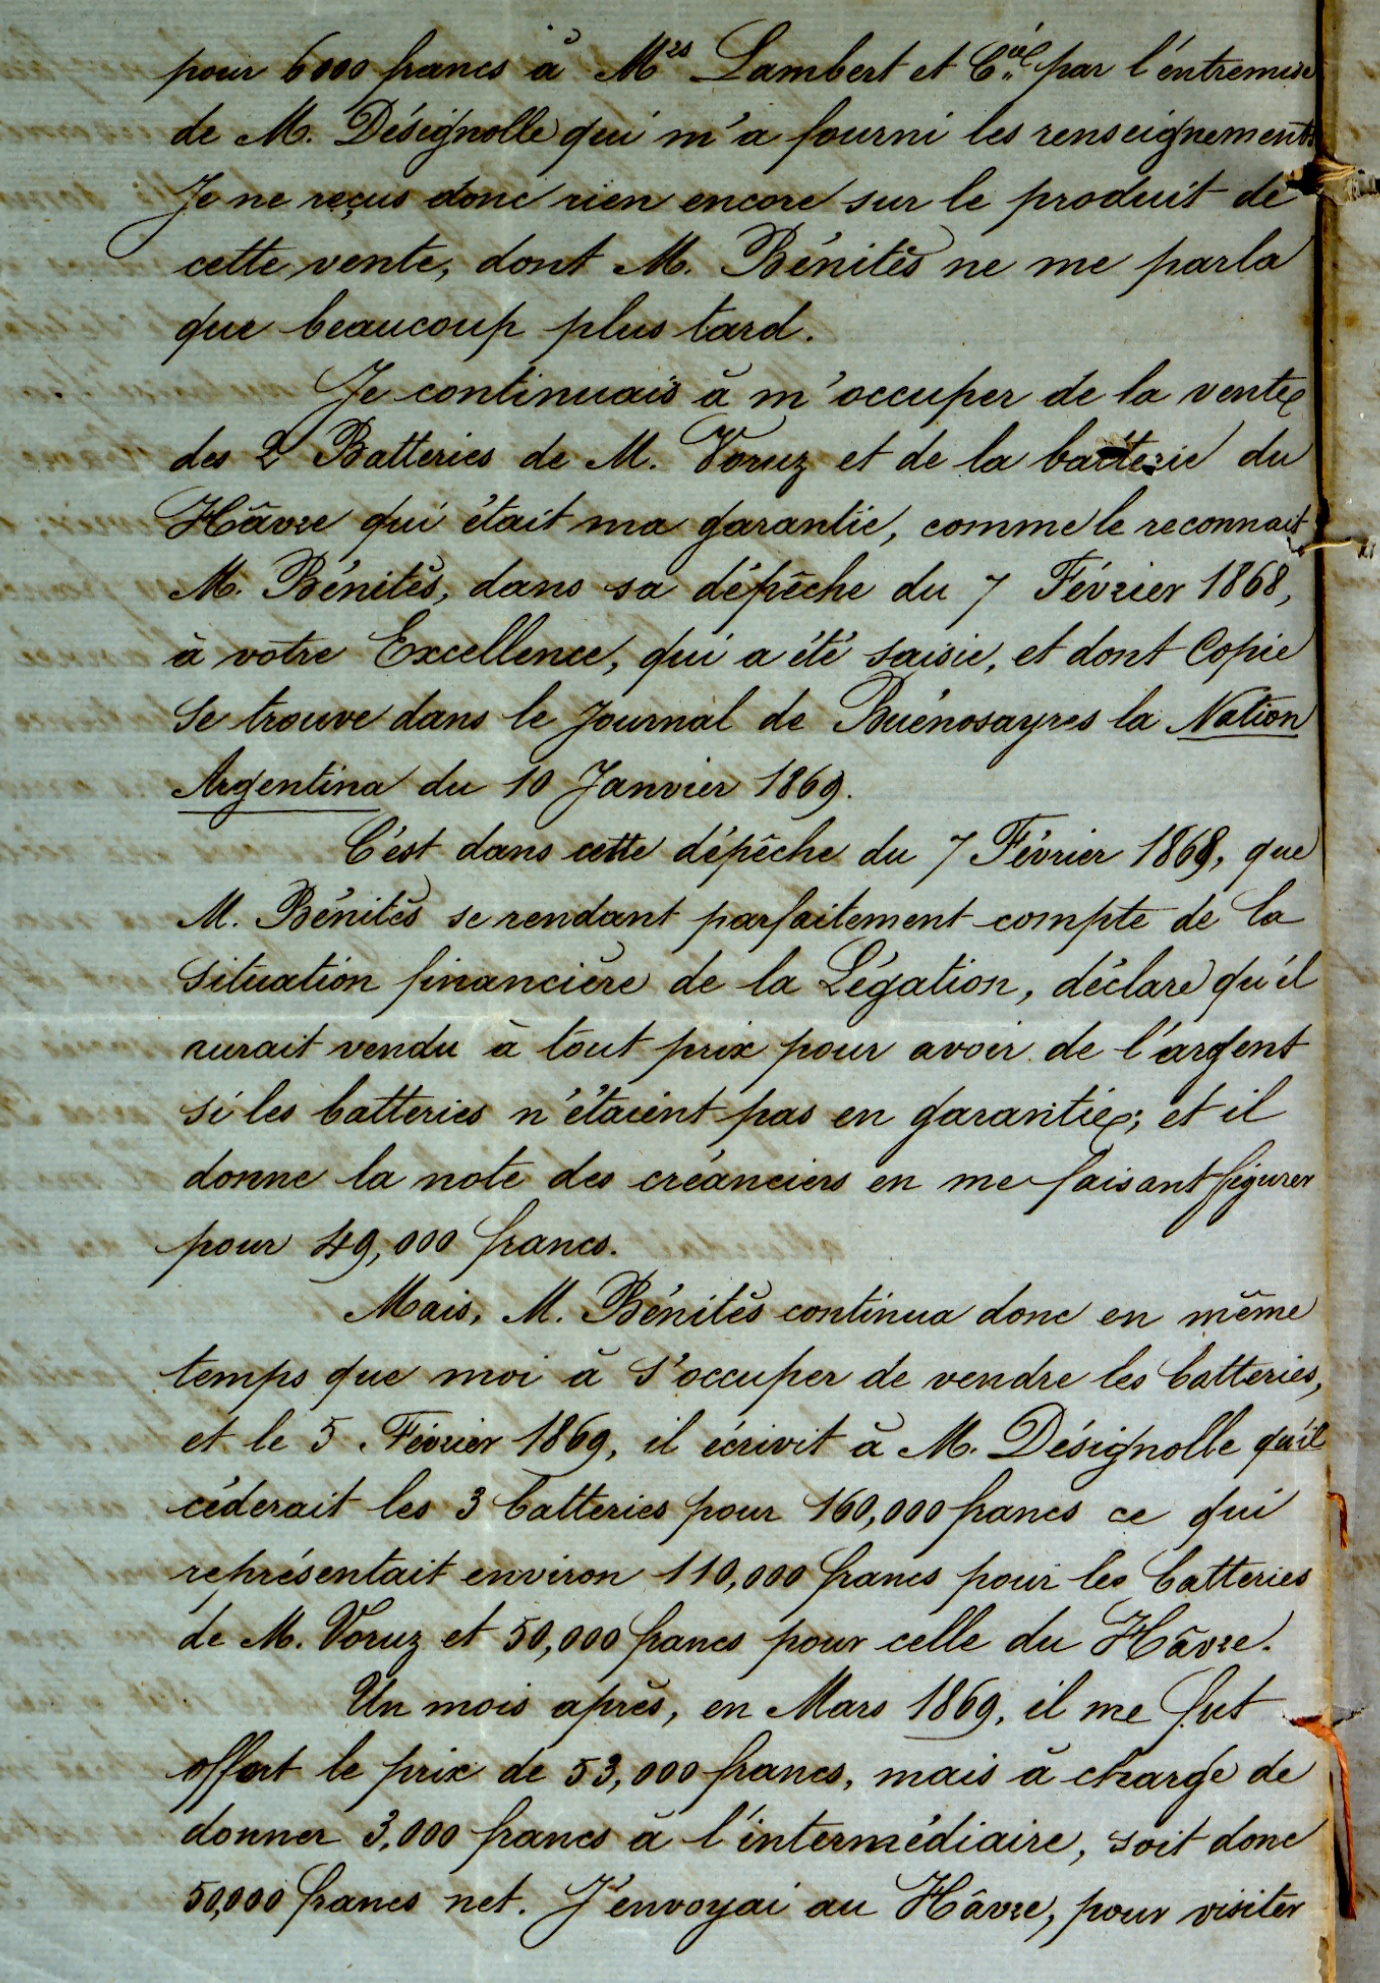 pour 6000 francs à M<sup>rs</sup> Lambert et C<sup>ie</sup> par l'éntremise
de M. Désignolle qui m'a fourni les renseignements
Je ne reçus donc rien encore sur le produit de
cette vente, dont M. Bénitès ne me parla
que beaucoup plus tard.
Je continuais à m'occuper de la vente
des 2 Batteries de M. Voruz et de la batterie du
Hâvre qui était ma garantie, comme le reconnait
M. Bénitès, dans sa dépêche du 7 Février 1868,
à votre Excellence, qui a été saisie, et dont Copie
se trouve dans le Journal de Buénosayres la Nation
Argentina du 10 Janvier 1869.
C'est dans cette dépêche du 7 Février 1868, que
M. Bénitès se rendant parfaitement compte de la
situation financière de la Légation, déclare qu'il
aurait vendu à tout prix pour avoir de l'argent
si les batteries n'étaient pas en garantie; et il
donne la note des créanciers en me faisant figurer
pour 49,000 francs.
Mais, M. Bénitès continua donc en même
temps que moi à s'occuper de vendre les batteries,
et le 5 Février 1869, il écrivit à M. Désignolle qu'il
céderait les 3 batteries pour 160,000 francs ce qui
représentait environ 110,000 francs pour les batteries
de M. Voruz et 50,000 francs pour celle du Hâvre.
Un mois après, en Mars 1869, il me fut
offert le prix de 53,000 francs, mais à charge de
donner 3,000 francs à l'intermédiaire, soit donc
50,000 francs net. J'envoyai au Hâvre, pour visiter